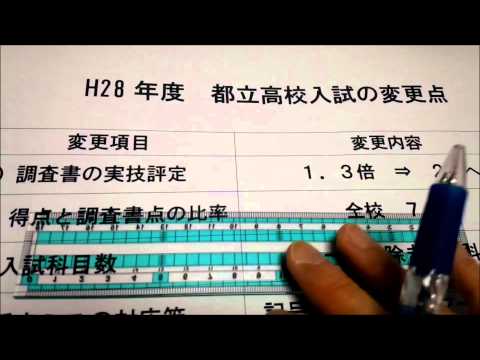 H28年度 都立高校入試の変更点
変更項目 変更内容
調査書の実技評定 1.3倍 ⇒ 2 へ
得点と調査書点の比率 全校 7
入試科目数 除 科